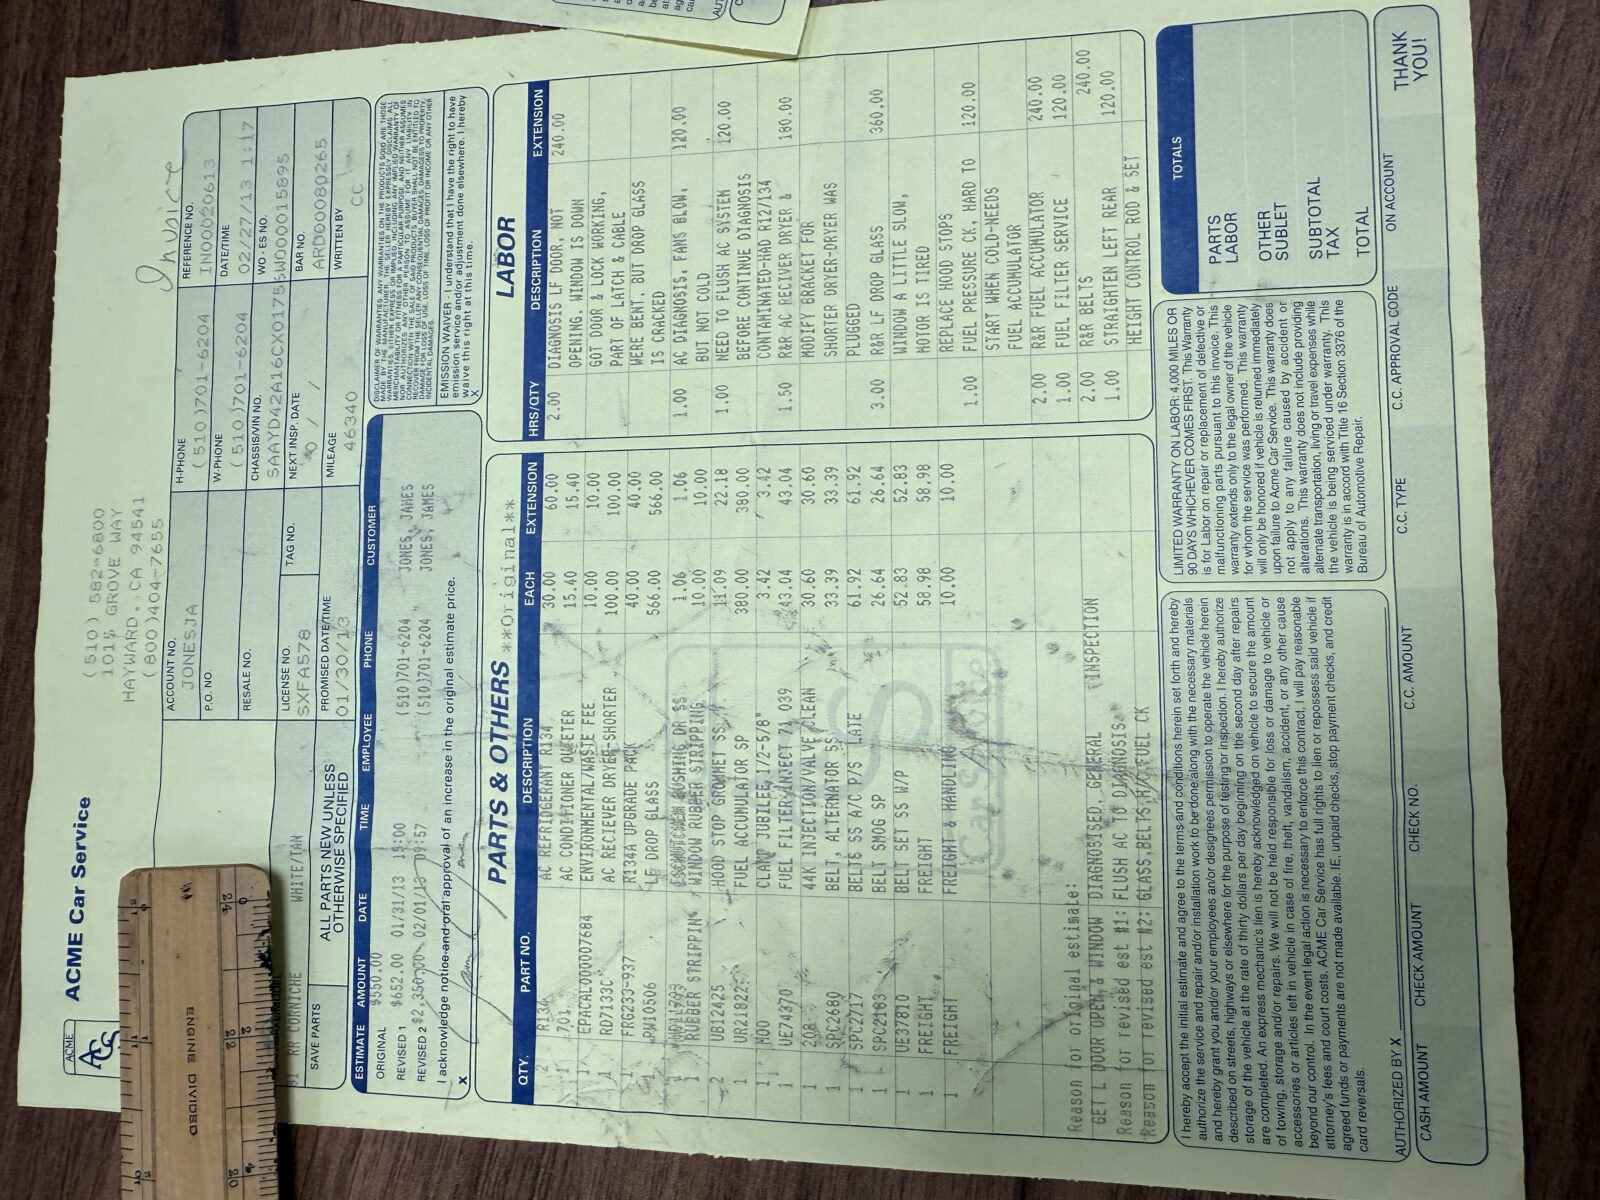 ACME
ACS
ACME Car Service
(510) 582-6800
1015 GROVE WAY
HAYWARD, CA 94541
(800)404-7655
Invoice
ACCOUNT NO.
JONESJA
H-PHONE
(510)701-6204
REFERENCE NO.
IN00020613
P.O. NO.
W-PHONE
(510)701-6204
DATE/TIME
02/27/13 1:17
RESALE NO.
CHASSIS/VIN NO.
SAAYD42A16CX0175
WO - ES NO.
5W0000015895
RR CORNICHE WHITE/TAN
LICENSE NO.
SXFA578
TAG NO.
NEXT INSP. DATE
BAR NO.
ARD00080265
SAVE PARTS
ALL PARTS NEW UNLESS
OTHERWISE SPECIFIED
PROMISED DATE/TIME
01/30/13
MILEAGE
46340
WRITTEN BY
CC
ESTIMATE AMOUNT DATE TIME EMPLOYEE PHONE CUSTOMER
ORIGINAL $550.00
REVISED 1 $652.00 01/31/13 15:00 (510)701-6204 JONES, JAMES
REVISED 2 $2,350.00 02/01/13 09:57 (510)701-6204 JONES, JAMES
I acknowledge notice and oral approval of an increase in the original estimate price.
X
DISCLAIMER OF WARRANTIES. ANY WARRANTIES ON THE PRODUCTS SOLD ARE THOSE
MADE BY THE MANUFACTURER. THE SELLER HEREBY EXPRESSLY DISCLAIMS ALL
WARRANTIES, EITHER EXPRESS OR IMPLIED, INCLUDING ANY IMPLIED WARRANTY OF
MERCHANTABILITY OR FITNESS FOR A PARTICULAR PURPOSE, AND NEITHER ASSUMES
NOR AUTHORIZES ANY OTHER PERSON TO ASSUME FOR IT ANY LIABILITY IN
CONNECTION WITH THE SALE OF SAID PRODUCTS. BUYER SHALL NOT BE ENTITLED TO
RECOVER FROM THE SELLER ANY CONSEQUENTIAL DAMAGES, DAMAGES TO PROPERTY,
DAMAGES FOR LOSS OF USE, LOSS OF TIME, LOSS OF PROFIT OR INCOME OR ANY OTHER
INCIDENTAL DAMAGES.
EMISSION WAIVER - I understand that I have the right to have
emission service and/or adjustment done elsewhere. I hereby
waive this right at this time.
X
PARTS & OTHERS **Original**
QTY. PART NO. DESCRIPTION EACH EXTENSION
2 R134 AC REFRIGERANT R134 30.00 60.00
1 701 AC CONDITIONER QUIETER 15.40 15.40
1 EPACAL000007684 ENVIRONMENTAL/WASTE FEE 10.00 10.00
1 RD7133C AC RECIEVER DRYER-SHORTER 100.00 100.00
1 FRG233-937 R134A UPGRADE PACK 40.00 40.00
1 PW10506 LF DROP GLASS 566.00 566.00
1 ESCHUTCHEN BUSHING DR SS 1.06 1.06
1 RUBBER STRIPPIN WINDOW RUBBER STRIPPING 10.00 10.00
2 UB12425 HOOD STOP GROMMET SS 11.09 22.18
1 UR21822 FUEL ACCUMULATOR SP 380.00 380.00
1 MOO CLAMP JUBILEE,1/2-5/8" 3.42 3.42
1 UE74370 FUEL FILTER/INJECT 71 039 43.04 43.04
1 208 44K INJECTION/VALVE CLEAN 30.60 30.60
1 SPC2680 BELT, ALTERNATOR SS 33.39 33.39
1 SPC2717 BELTS SS A/C P/S LATE 61.92 61.92
1 SPC2183 BELT SMOG SP 26.64 26.64
1 UE37810 BELT SET SS W/P 52.83 52.83
1 FREIGHT FREIGHT 58.98 58.98
1 FREIGHT FREIGHT & HANDLING 10.00 10.00
Reason for original estimate:
GET L DOOR OPEN & WINDOW DIAGNOSISED, GENERAL INSPECTION
Reason for revised est #1: FLUSH AC TO DIAGNOSIS
Reason for revised est #2: GLASS,BELTS,A/C,FUEL CK
LABOR
HRS/QTY DESCRIPTION EXTENSION
2.00 DIAGNOSIS LF DOOR, NOT 240.00
OPENING, WINDOW IS DOWN
GOT DOOR & LOCK WORKING,
PART OF LATCH & CABLE
WERE BENT, BUT DROP GLASS
IS CRACKED
1.00 AC DIAGNOSIS, FANS BLOW, 120.00
BUT NOT COLD
1.00 NEED TO FLUSH AC SYSTEM 120.00
BEFORE CONTINUE DIAGNOSIS
CONTAMINATED-HAD R12/134
1.50 R&R AC RECIVER DRYER & 180.00
MODIFY BRACKET FOR
SHORTER DRYER-DRYER WAS
PLUGGED
3.00 R&R LF DROP GLASS 360.00
WINDOW A LITTLE SLOW,
MOTOR IS TIRED
REPLACE HOOD STOPS
1.00 FUEL PRESSURE CK, HARD TO 120.00
START WHEN COLD-NEEDS
FUEL ACCUMULATOR
2.00 R&R FUEL ACCUMULATOR 240.00
1.00 FUEL FILTER SERVICE 120.00
2.00 R&R BELTS 240.00
1.00 STRAIGHTEN LEFT REAR 120.00
HEIGHT CONTROL ROD & SET
I hereby accept the initial estimate and agree to the terms and conditions herein set forth and hereby
authorize the service and repair and/or installation work to be done along with the necessary materials
and hereby grant you and/or your employees and/or designees permission to operate the vehicle herein
described on streets, highways or elsewhere for the purpose of testing or inspection. I hereby authorize
storage of the vehicle at the rate of thirty dollars per day beginning on the second day after repairs
are completed. An express mechanic's lien is hereby acknowledged on vehicle to secure the amount
of towing, storage and/or repairs. We will not be held responsible for loss or damage to vehicle or
accessories or articles left in vehicle in case of fire, theft, vandalism, accident, or any other cause
beyond our control. In the event legal action is necessary to enforce this contract, I will pay reasonable
attorney's fees and court costs. ACME Car Service has full rights to lien or repossess said vehicle if
agreed funds or payments are not made available. IE, unpaid checks, stop payment checks, and credit
card reversals.
AUTHORIZED BY X
LIMITED WARRANTY ON LABOR: 4,000 MILES OR
90 DAYS WHICHEVER COMES FIRST. This Warranty
is for Labor on repair or replacement of defective or
malfunctioning parts pursuant to this invoice. This
warranty extends only to the legal owner of the vehicle
for whom the service was performed. This warranty
will only be honored if vehicle is returned immediately
upon failure to Acme Car Service. This warranty does
not apply to any failure caused by accident or
alterations. This warranty does not include providing
alternate transportation, living or travel expenses while
the vehicle is being serviced under warranty. This
warranty is in accord with Title 16 Section 3376 of the
Bureau of Automotive Repair.
TOTALS
PARTS
LABOR
OTHER
SUBLET
SUBTOTAL
TAX
TOTAL
CASH AMOUNT CHECK AMOUNT CHECK NO. C.C. AMOUNT C.C. TYPE C.C. APPROVAL CODE ON ACCOUNT
THANK
YOU!
ENGINE DIVIDED